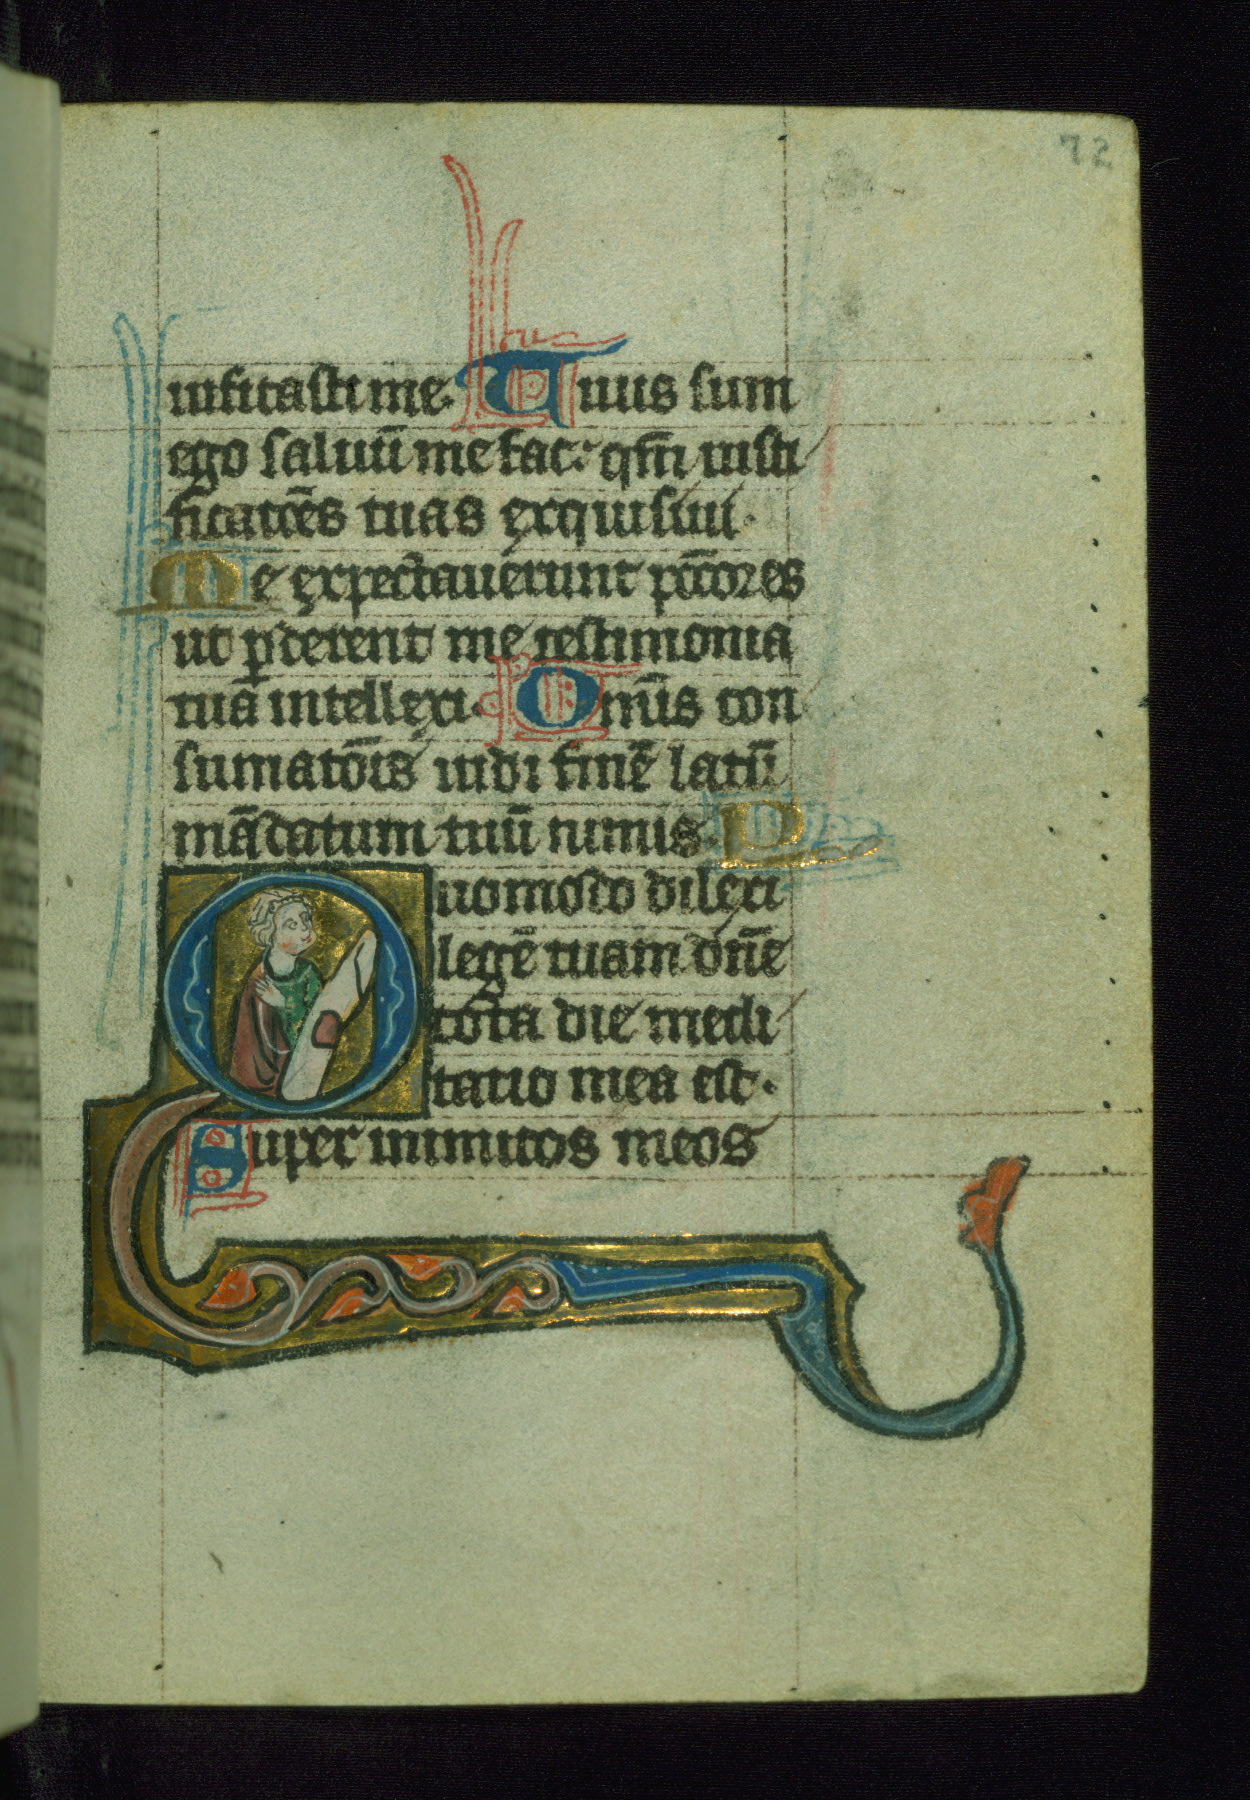 72
uificasti me. Tuus sum
ego saluū me fac: qm̄ iusti
ficatōes tuas exquisiui.
Me expectauerunt pc̄tores
ut pderent me testimonia
tua intellexi. Omīs con
sumatōis uidi finē latū
mādatum tuū nimis.
Quomodo dilexi
legē tuam dn̄e
tota die medi
tatio mea est.
Super inimicos meos